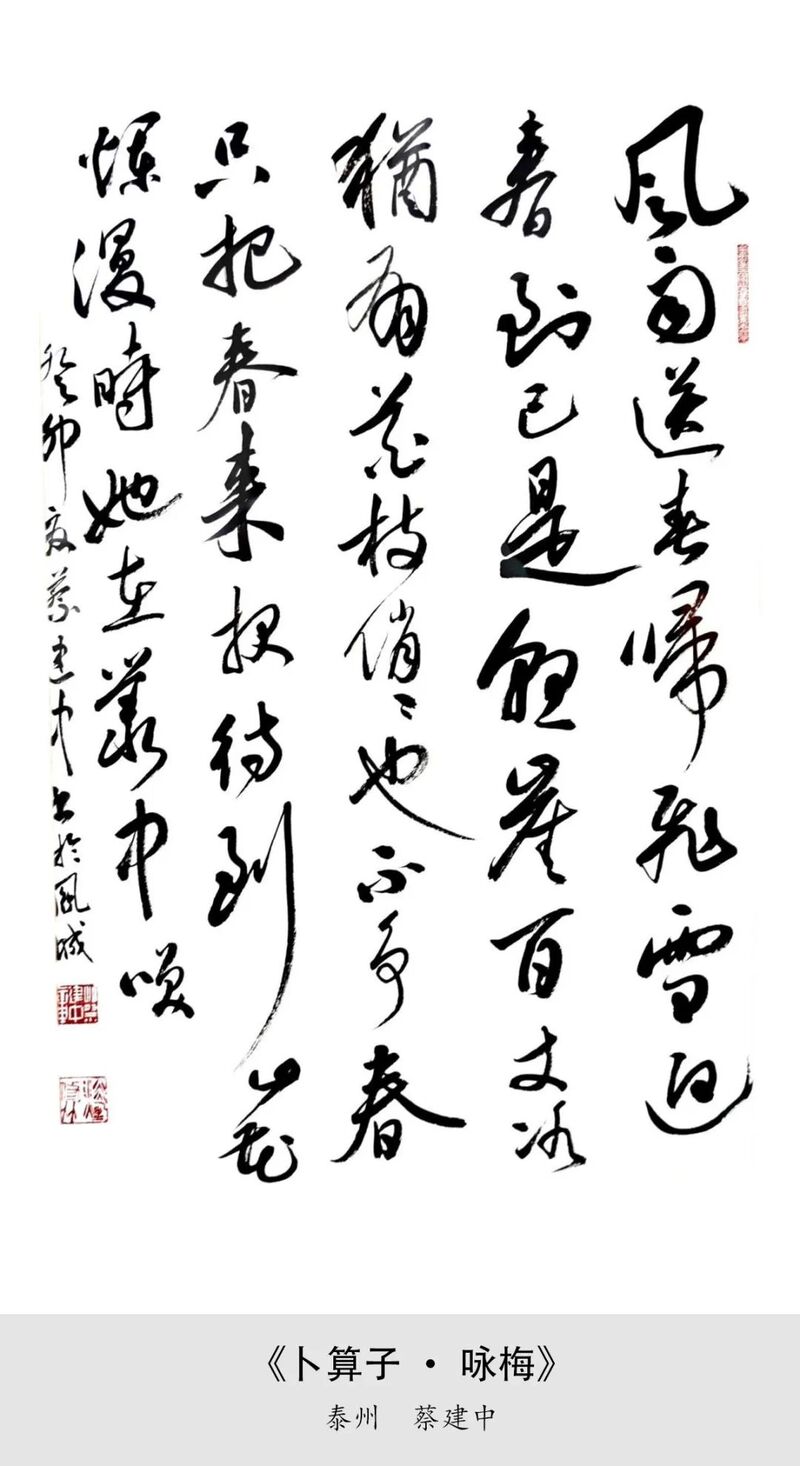 风雨送春歸飛雪迎
春到已是懸崖百丈冰
猶有花枝俏〻也不争春
只把春来报待到山花
爛漫時她在叢中咲
癸卯夏蔡建中书於凤城
《卜算子·咏梅》
泰州 蔡建中